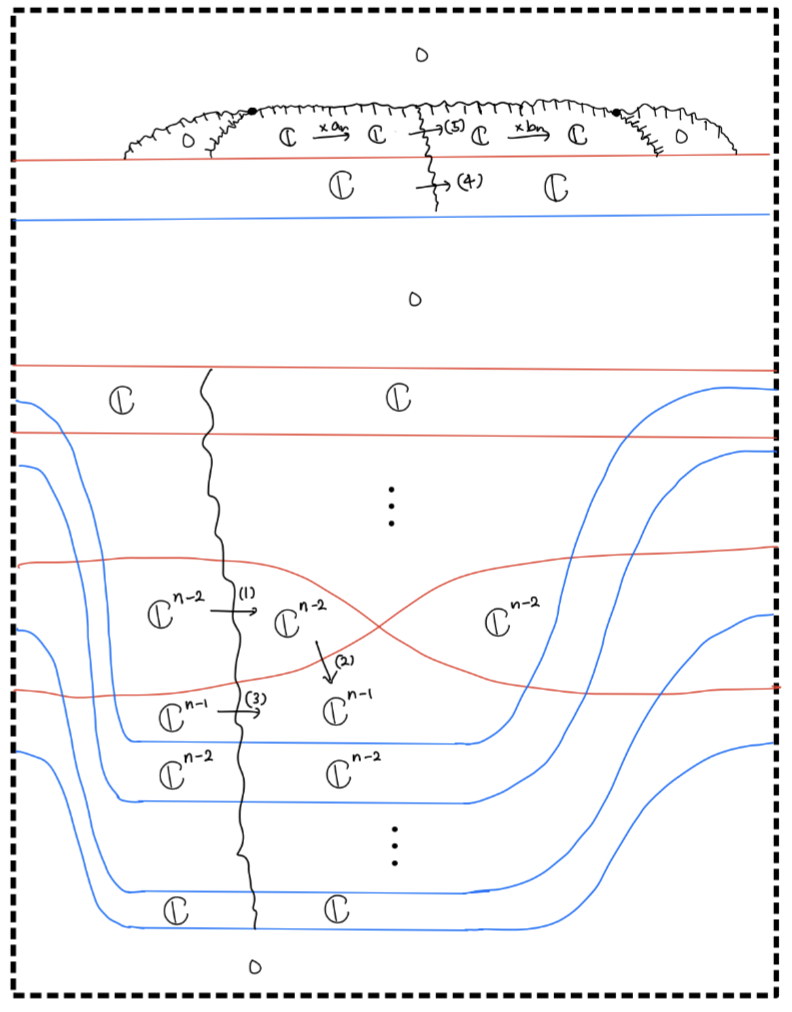 0
0 ℂ ×aₙ ℂ (5) ℂ ×bₙ ℂ 0
ℂ (4) ℂ
0
ℂ ℂ
⋮
ℂⁿ⁻² (1) ℂⁿ⁻² ℂⁿ⁻²
(2)
ℂⁿ⁻¹ (3) ℂⁿ⁻¹
ℂⁿ⁻² ℂⁿ⁻²
⋮
ℂ ℂ
0